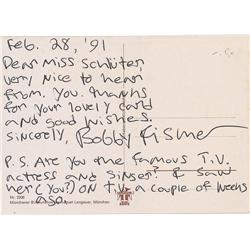 Feb. 28, '91
Dear Miss Schlüter
very nice to hear
from you. Thanks
for your lovely card
and good wishes.
Sincerely, Bobby Fisher
P.S. Are you the famous T.V.
actress and singer? I saw
her (you?) on T.V. a couple of weeks
ago.
Nr. 2206
Lengauer, München